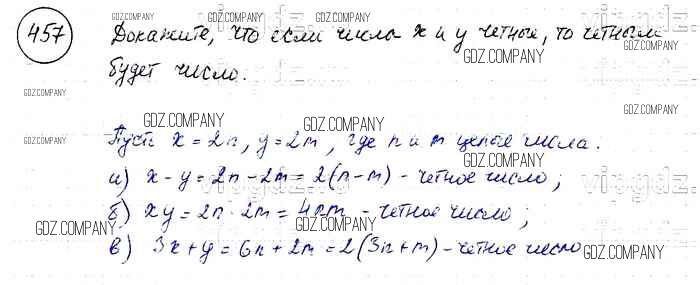 457 Докажите, что если числа x и y четные, то четным
будет число.
Пусть x = 2n, y = 2m, где n и m целые числа.
а) x - y = 2n - 2m = 2(n-m) - четное число;
б) xy = 2n · 2m = 4nm - четное число;
в) 3x + y = 6n + 2m = 2(3n+m) - четное число
GDZ.COMPANY
GDZ.COMPANY
GDZ.COMPANY
GDZ.COMPANY
GDZ.COMPANY
GDZ.COMPANY
GDZ.COMPANY
GDZ.COMPANY
GDZ.COMPANY
GDZ.COMPANY
GDZ.COMPANY
GDZ.COMPANY
GDZ.COMPANY